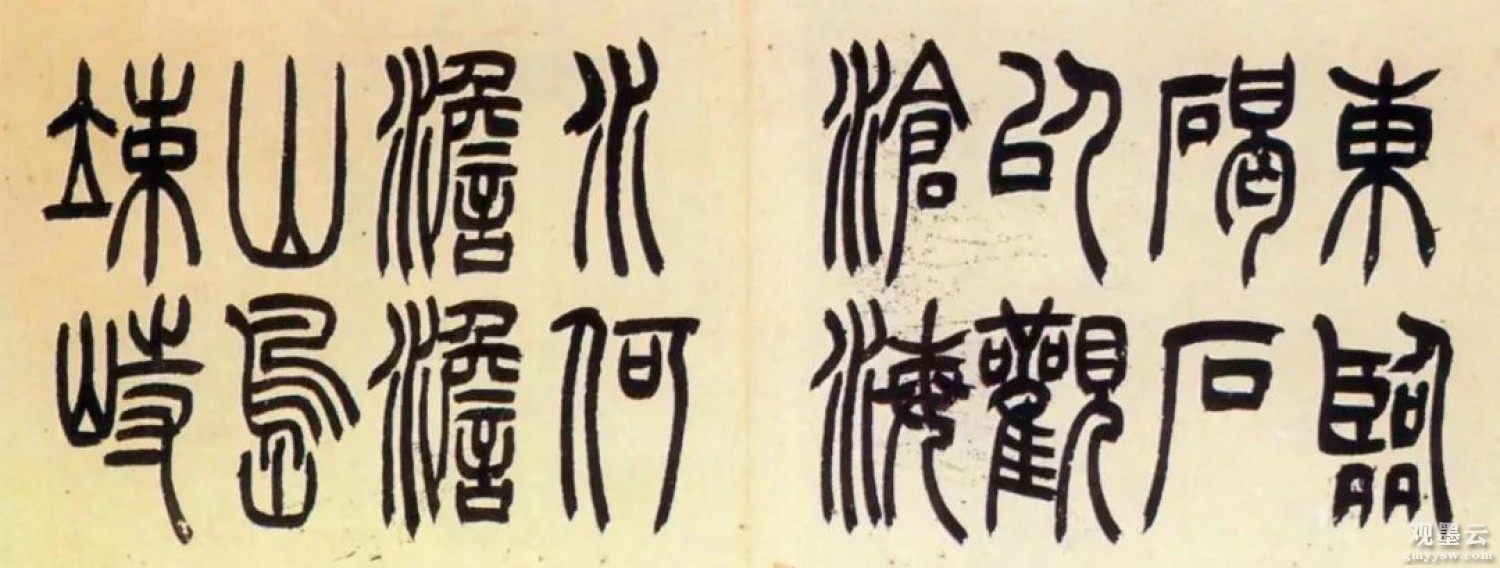 東臨
碣石
以觀
滄海
水何
澹澹
山島
竦峙
观墨云
gmyysw.com